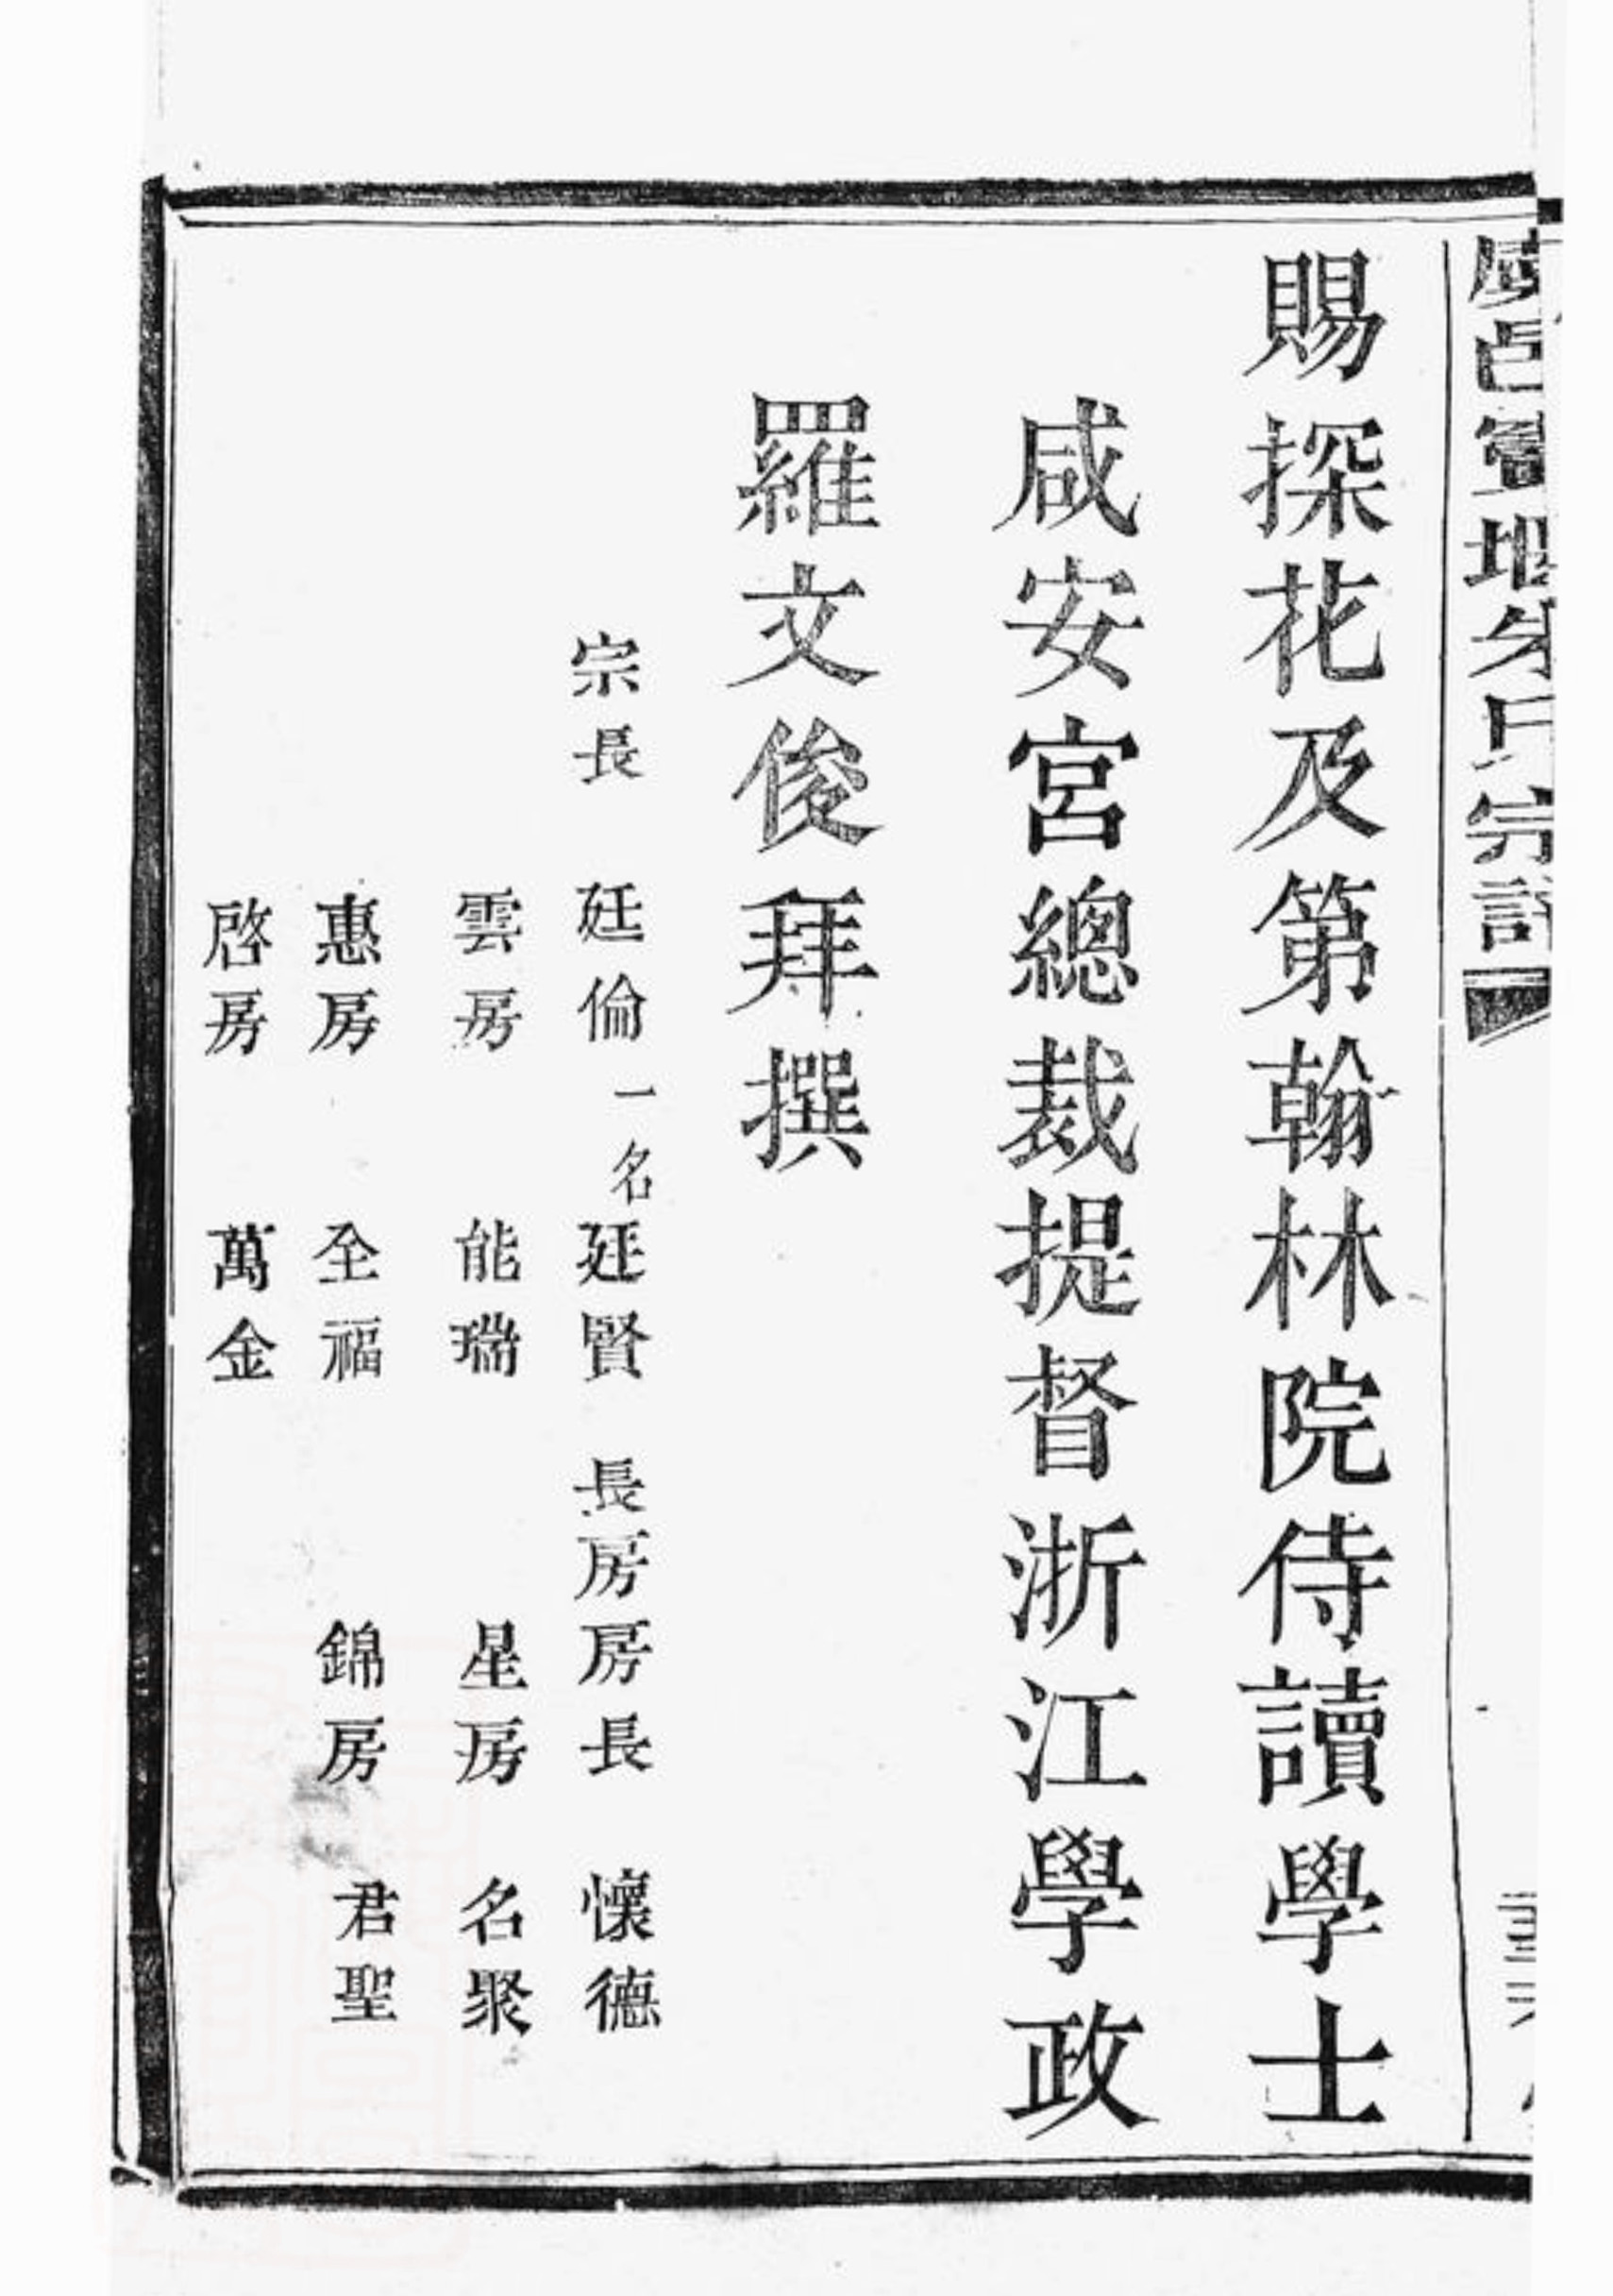 朱氏宗譜
賜探花及第翰林院侍讀學士
咸安宮總裁提督浙江學政
羅文俊拜撰
宗長 廷倫 一名 廷賢 長房房長 懷德
雲房 能瑞 星房 名聚
惠房 全福 錦房 君聖
啓房 萬金